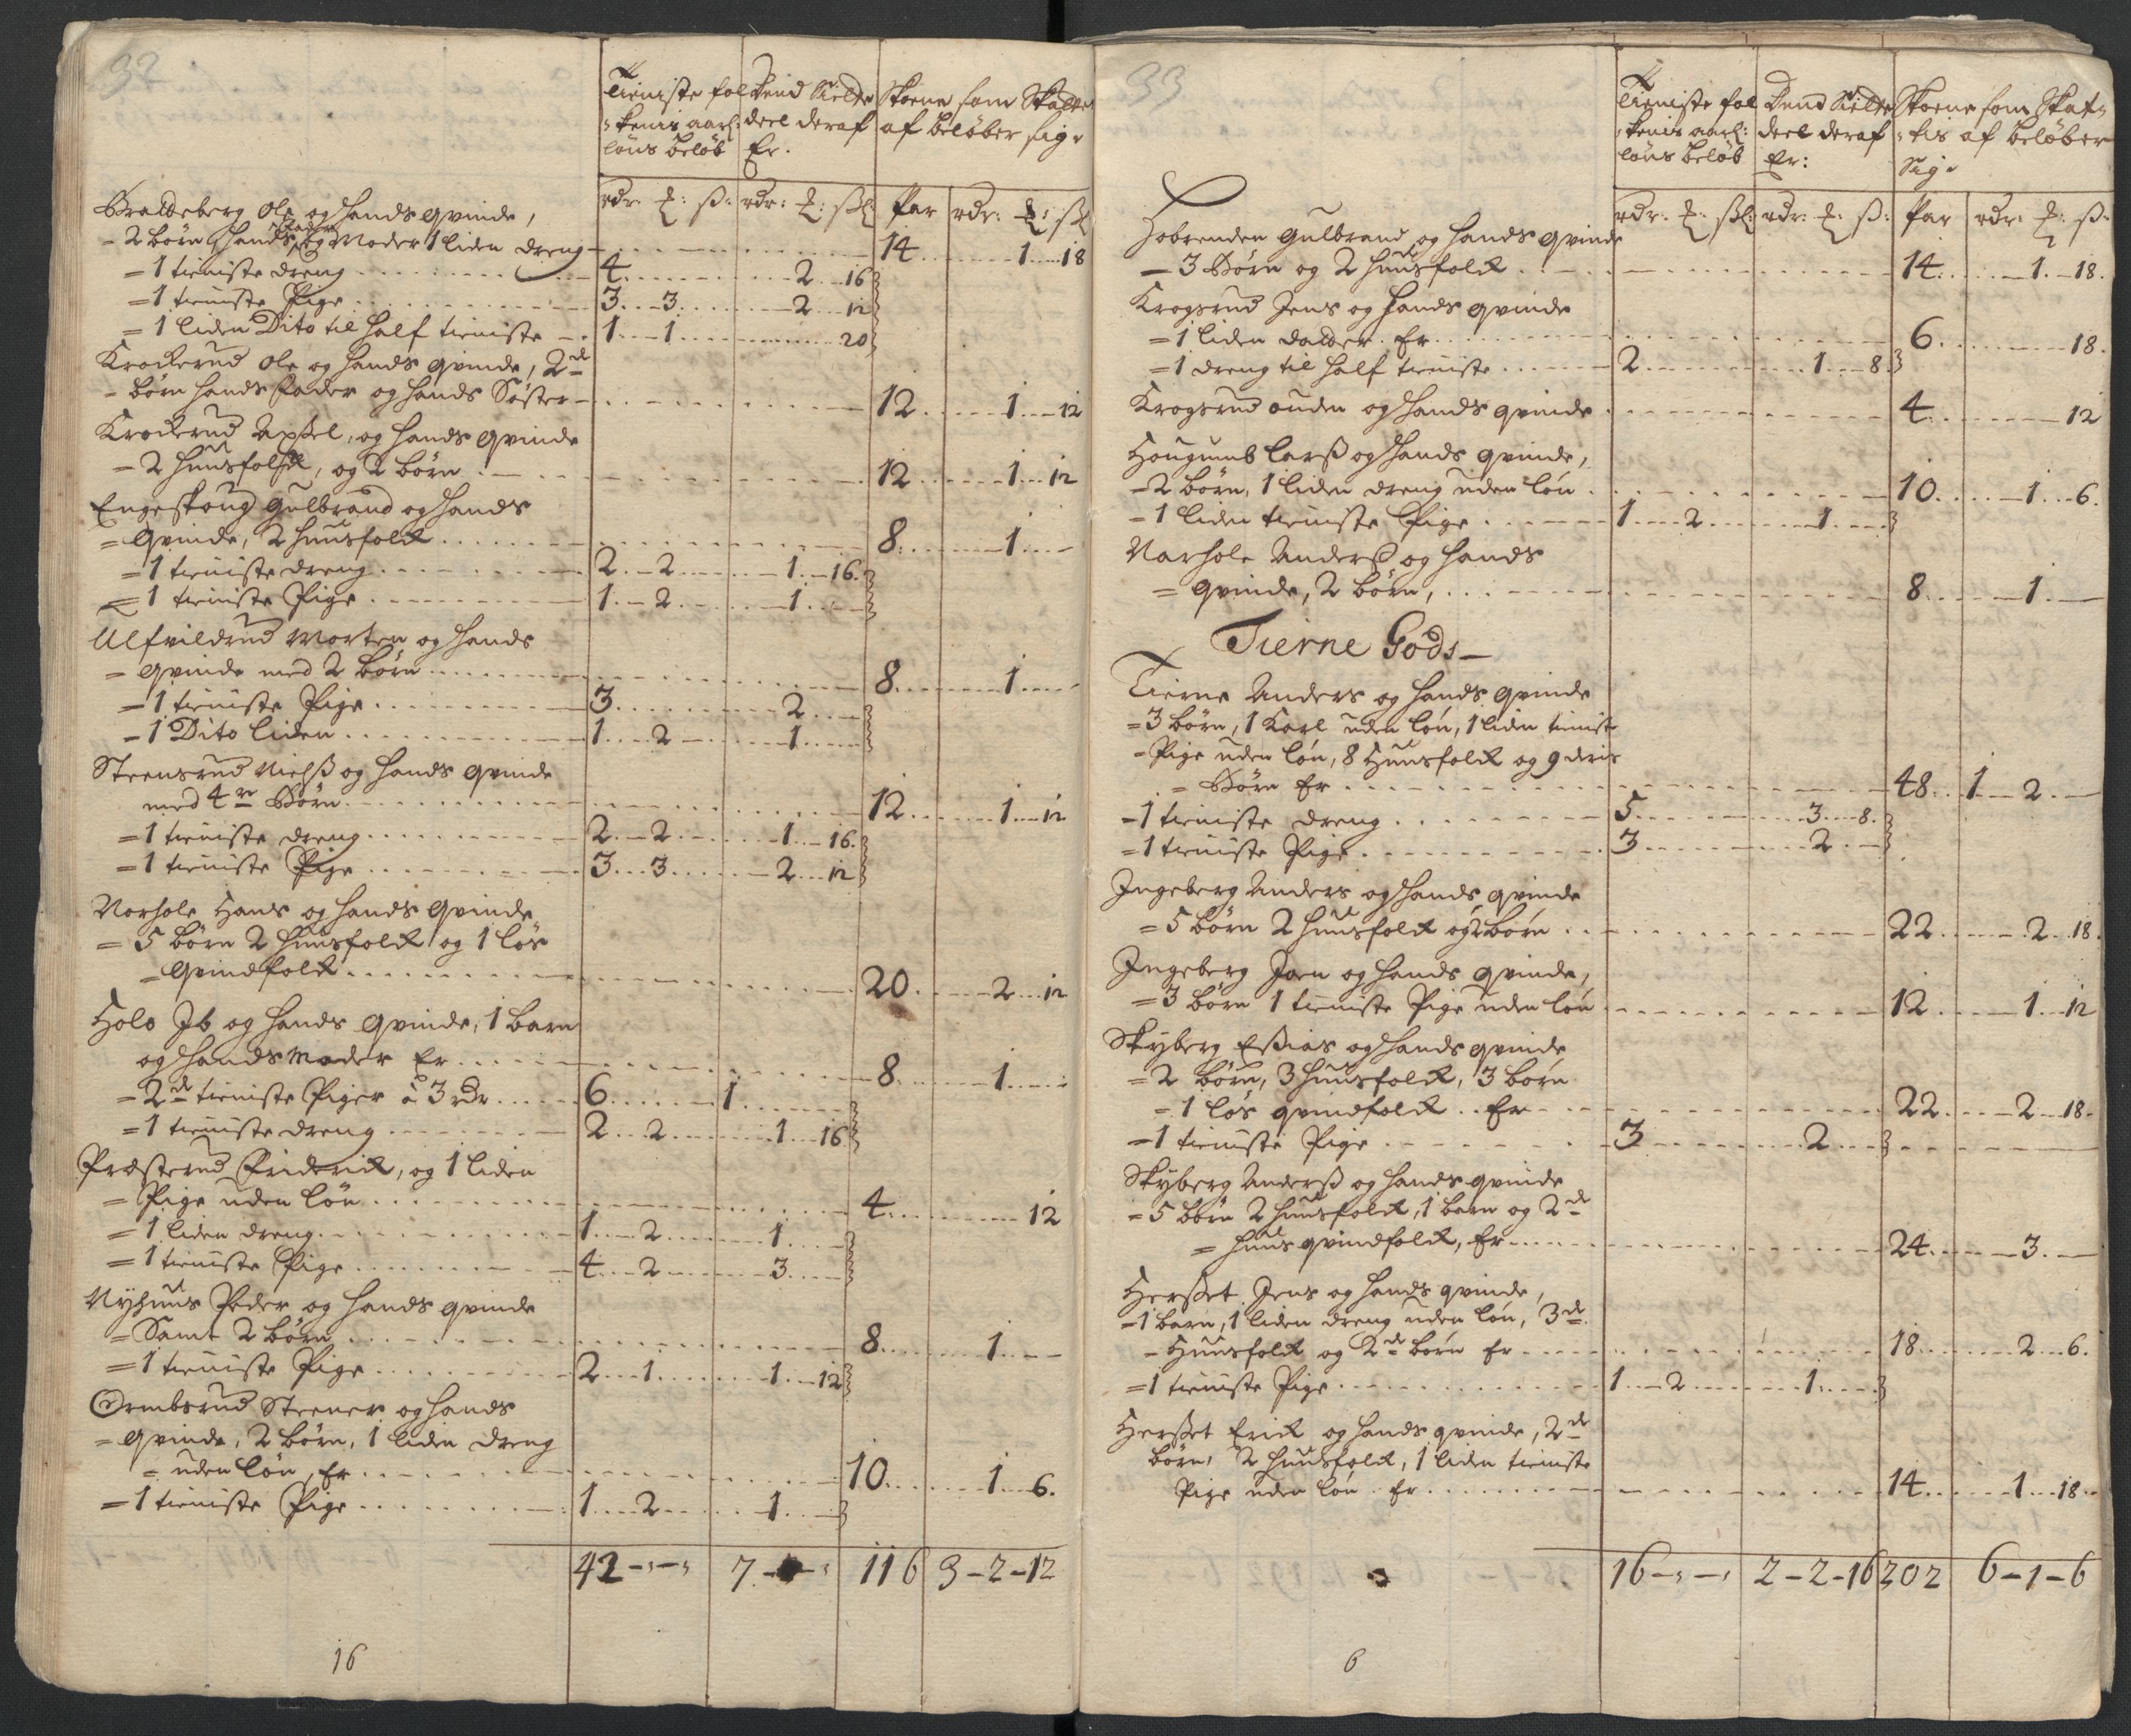 32
Tieniste fol Dend Siette Skoene som Skatten
-kenis aarl: deel deraf af beløber sig.
løns beløb Er.
rdr. ß. rdr: ßl: Par rdr: ßl
Braddeberg Ole og hands qvinde,
- 2 børn hands Fader og Moder 1 liden dreng 14 1 18
= 1 tieniste dreng 4 2 16
= 1 tieniste Pige 3 3 2 12
= 1 liden Dito til half tieniste 1 1 20
Krockerud Ole og hands qvinde, 2de
- børn hands Fader og hands Søster 12 1 12
Krockerud Axsel, og hands qvinde
- 2 huusfolck, og 2 børn 12 1 12
Engeskoug Gulbrand og hands
= qvinde, 2 huusfolck 8 1
= 1 tieniste dreng 2 2 1 16
= 1 tieniste Pige 1 2 1
Ulfvildrud Morten og hands
= qvinde med 2 børn 8 1
= 1 tieniste Pige 3 2
- 1 Dito liden 1 2 1
Steensrud Nielß og hands qvinde
med 4re Børn 12 1 12
= 1 tieniste dreng 2 2 1 16
= 1 tieniste Pige 3 3 2 12
Norhole Hans og hands qvinde
= 5 børn 2 huusfolck og 1 løs
- qvindfolck 20 2 12
Holo Ib og hands qvinde, 1 barn
og hands Moder Er 8 1
= 2de tieniste Piger à 3 rdr 6 1
= 1 tieniste dreng 2 2 1 16
Præsterud Friderick, og 1 liden
= Pige uden løn 4 12
= 1 liden dreng 1 2 1
= 1 tieniste Pige 4 2 3
Nyhuus Peder og hands qvinde
= Samt 2 børn 8 1
= 1 tieniste Pige 2 1 1 12
Ormbsrud Steener og hands
= qvinde, 2 børn, 1 liden dreng
= uden løn, Er 10 1 6.
= 1 tieniste Pige 1 2 1
42 7 116 3-2-12
16
33
Tieniste fol Dend Siette Skoene som Skat-
-kenis aarl: deel deraf -tis af beløber
løns beløb Er: Sig.
rdr. ßl: rdr: ß: Par rdr: ß.
Hobrenden Gulbrand og hands qvinde
= 3 Børn og 2 huusfolck 14 1 18.
Krogsrud Jens og hands qvinde
= 1 liden datter. Er 6 18.
= 1 dreng til half tieniste 2 1 8.
Krogsrud Ouden og hands qvinde 4 12
Hougumb Larß og hands qvinde,
- 2 børn, 1 liden dreng uden løn 10 1 6.
- 1 liden tieniste Pige 1 2 1
Narhole Anderß og hands
= qvinde, 2 børn, 8 1
Tierne Gods
Tierne Anders og hands qvinde
= 3 børn, 1 Karl uden løn, 1 liden tieniste
- Pige uden løn, 8 Huusfolck og 9 deris
= Børn Er 48 1 2
- 1 tieniste dreng 5 3 8.
= 1 tieniste Pige 3 2
Ingeberg Anders og hands qvinde
= 5 børn 2 huusfolck og 2 børn 22 2 18.
Ingeberg Joen og hands qvinde,
= 3 børn 1 tieniste Pige uden løn 12 1 12
Skyberg Eßias og hands qvinde
= 2 børn, 3 huusfolck, 3 børn
= 1 løs qvindfolck .. Er 22 2 18.
= 1 tieniste Pige 3 2
Skyberg Anderß og hands qvinde
= 5 børn 2 huusfolck, 1 barn og 2de
= huus qvindfolck, Er 24 3.
Herset Jens og hands qvinde,
- 1 barn, 1 liden dreng uden løn, 3de
- Huusfolck og 2de børn Er 18 2 6.
= 1 tieniste Pige 1 2 1
Herset Erick og hands qvinde, 2de
børn, 2 huusfolck, 1 liden tieniste
Pige uden løn .. Er 14 1 18
16 2-2-16 202 6-1-6
6